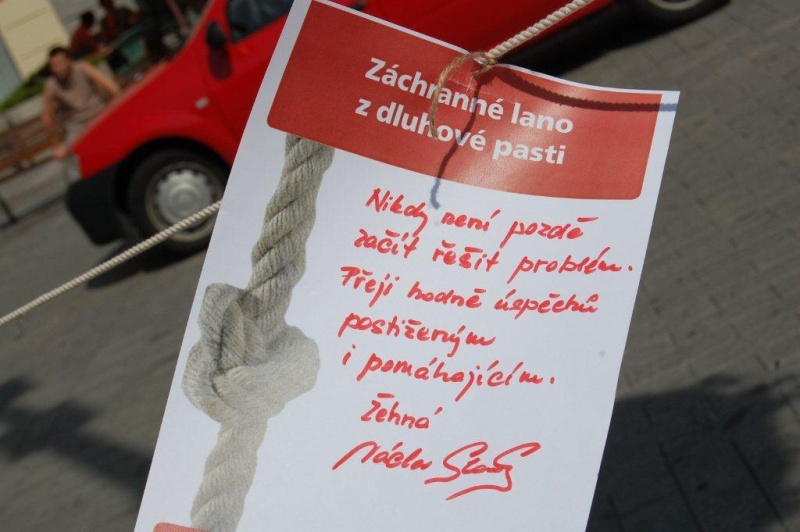 Záchranné lano
z dluhové pasti
Nikdy není pozdě
začít řešit problém.
Přeji hodně úspěchů
postiženým
i pomáhajícím.
Žehná
Václav